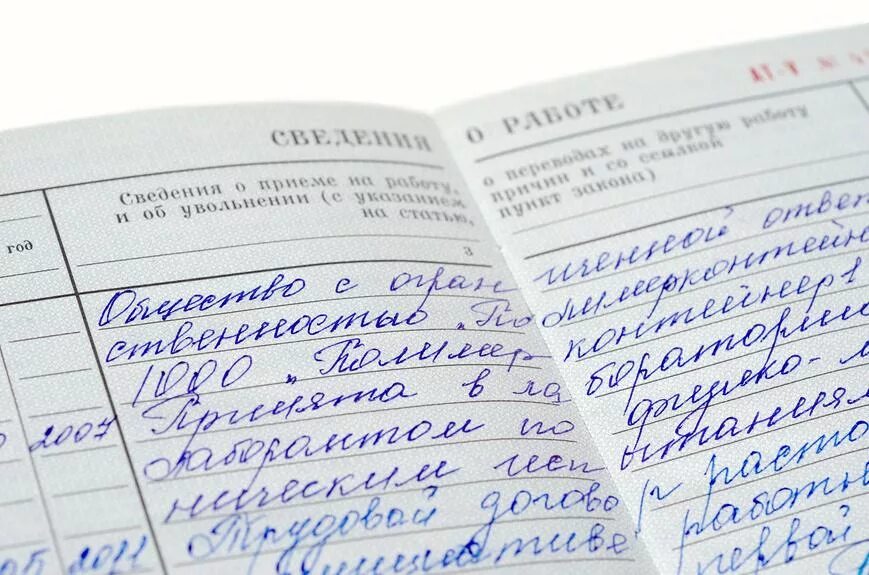 АТ-V №
СВЕДЕНИЯ О РАБОТЕ
Сведения о приеме на работу, о переводах на другую работу
и об увольнении (с указанием причин и со ссылкой
на статью, пункт закона)
год
3
Общество с ограниченной ответ
ственностью „Полимерконтейн
/ООО „Полимерконтейнер"/
2007 Принята в лабораторию
лаборантом по физико-м
ническим испытаниям
Трудовой договор расто
05 2011 инициативе работн
первой